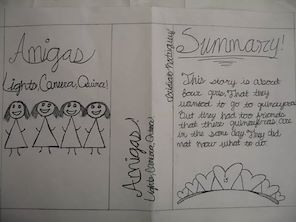 Amigas
Lights, Camera, Quince!
Amigas!
Lights, Camera, Quince!
Summary!
This story is about
four girls. That they
wanted to go to quinceñeras
But they had too friends
that there quinceñeras are
in the same day. They did
not know what to do.